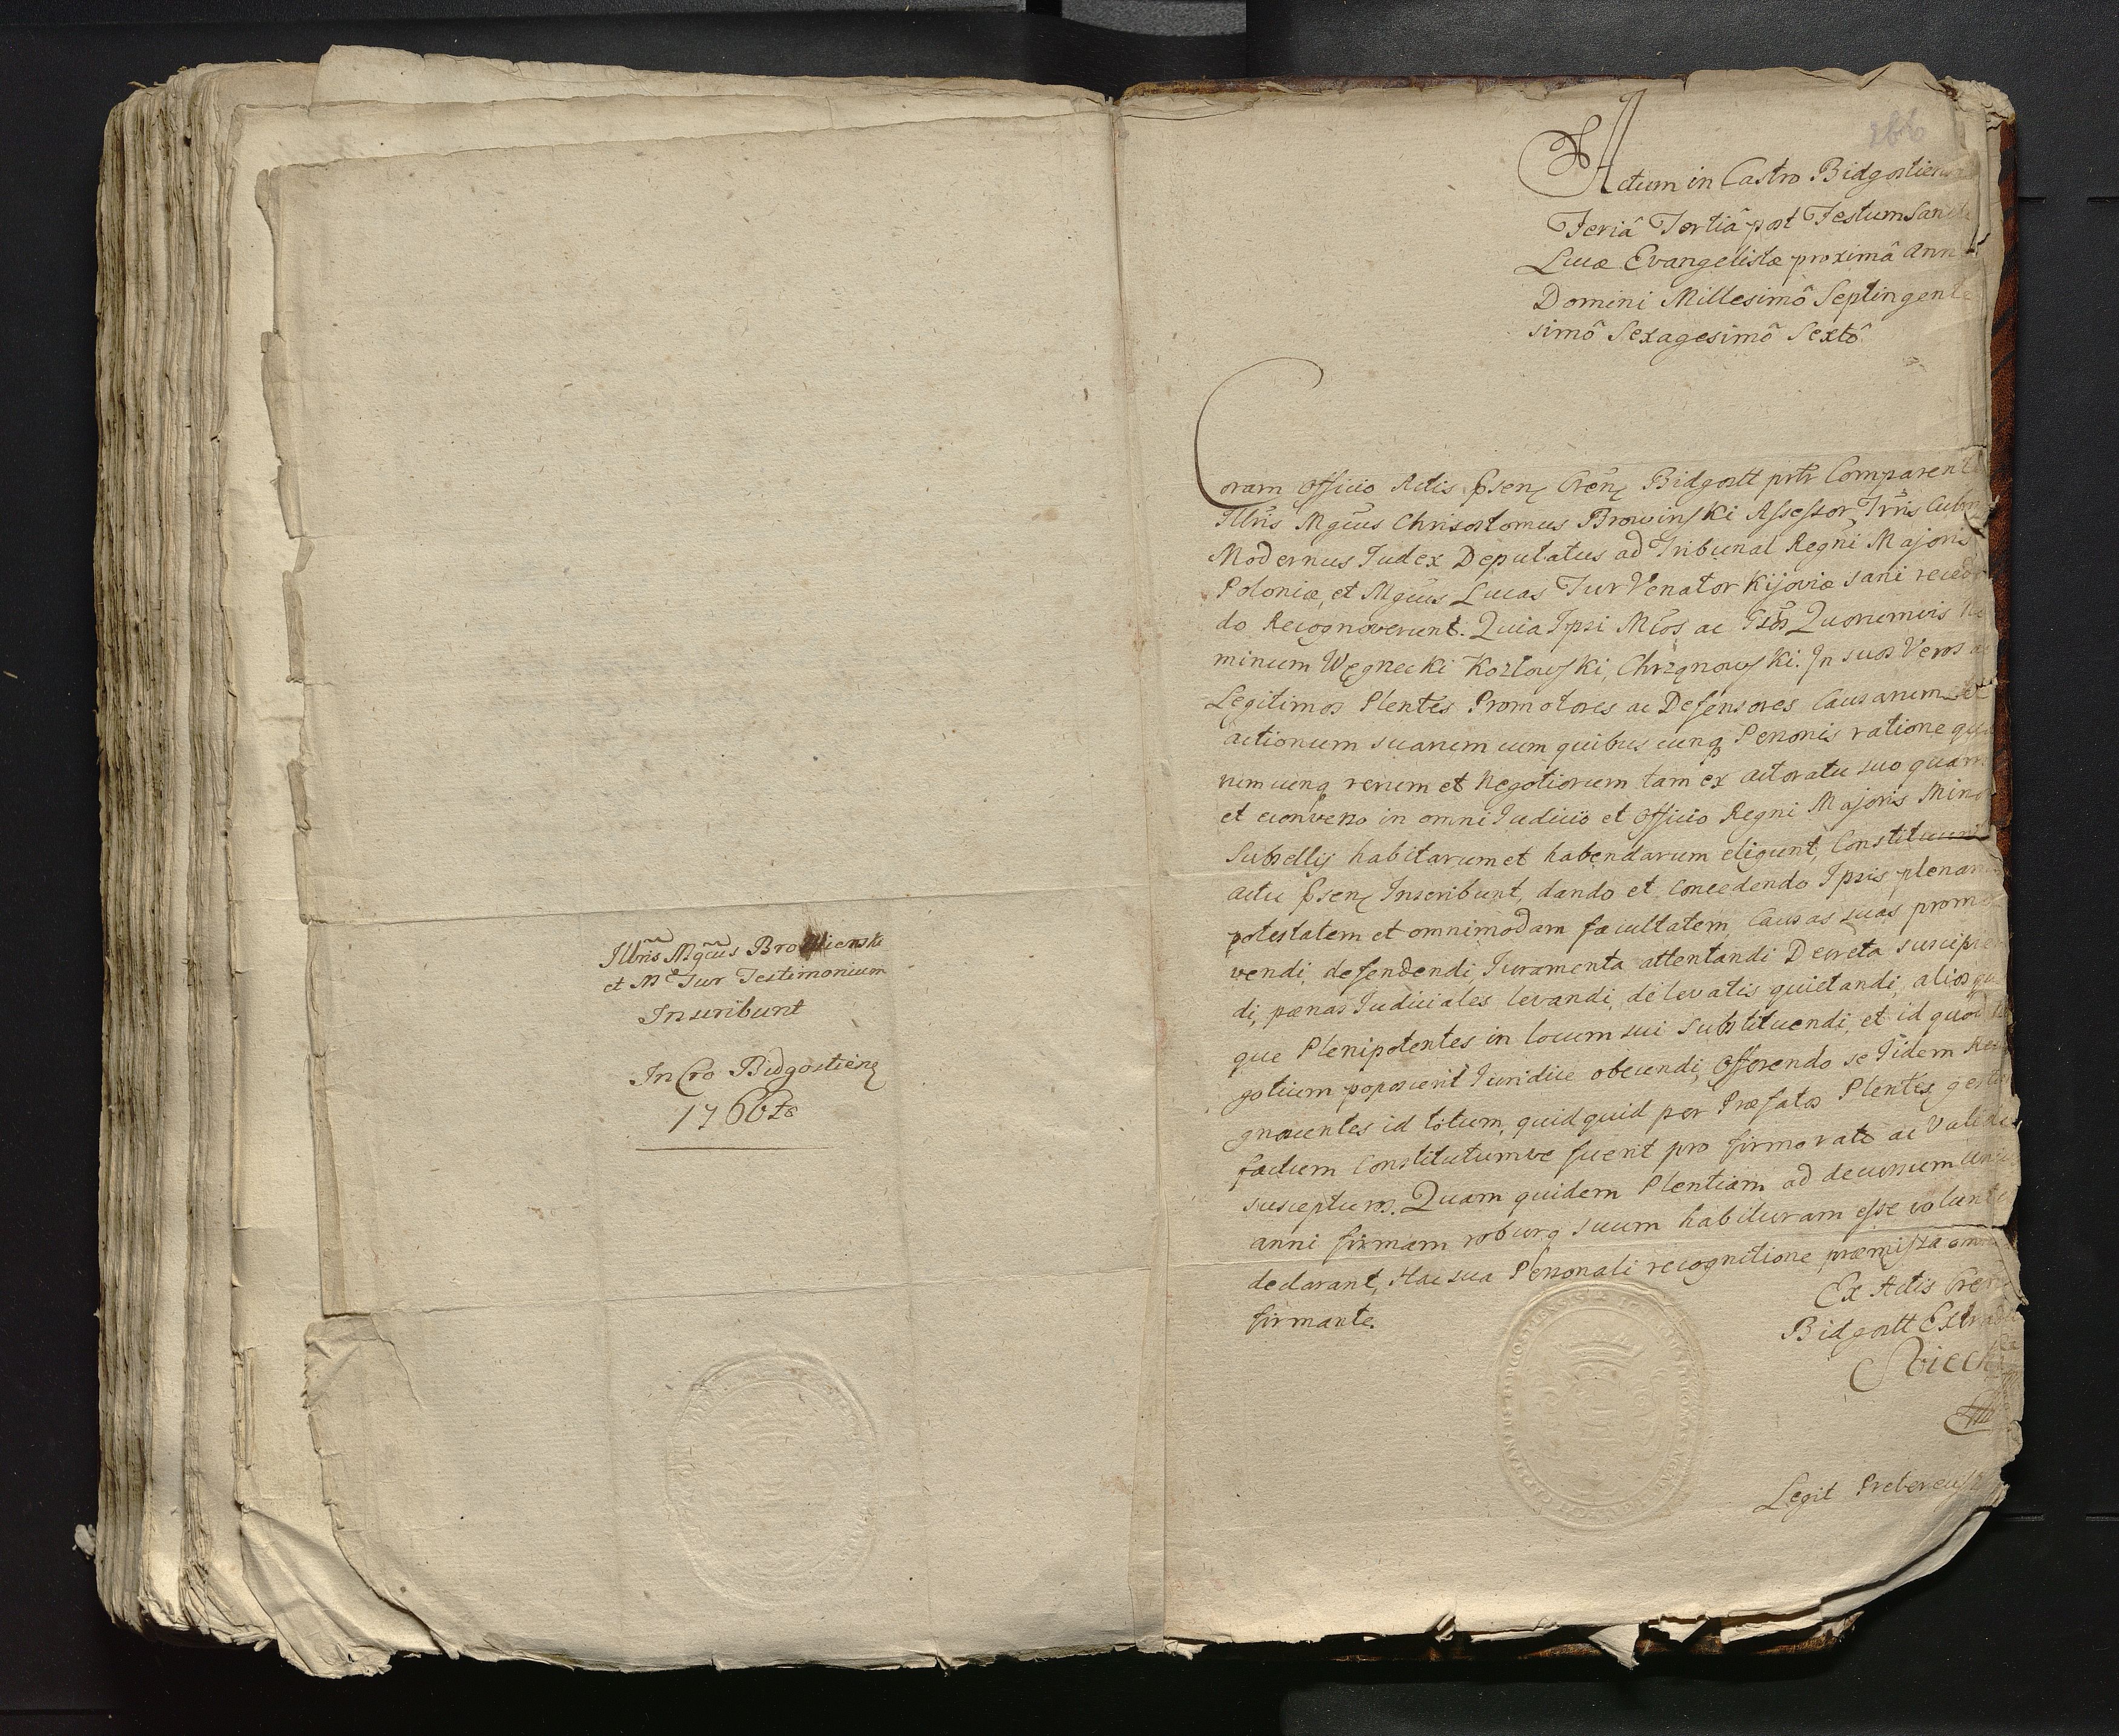 Illris Mgcus Browienski
et Mc Tur Testimonium
Inscribunt
In Cro Bidgostienz
1766to
266
Actum in Castro Bidgostiens
Feriâ Tertiâ post Festum Sancti
Lucæ Evangelistæ proximâ Ann
Domini Millesimô Septingente
simô Sexagesimô Sextô.
Coram Officio Actis psenz Crenz Bidgostt prtr Comparent
Illris Mgcus Chrisostomus Browinski Assessor Trris
Modernus Judex Deputatus ad Tribunal Regni Majoris
Poloniæ, et Mgcus Lucas Tur Venator Kijoviæ sani receden
do Recognoverunt. Quia Ipsi Mcos ac Gsos Quorumvis No
minum Węgnecki Kozlowski, Chrząnowski. In suos Veros ac
Legitimos Plentes Promotores ac Defensores Causarum et
actionum suarum cum quibuscunq Personis ratione quo
rumcunq rerum et Negotiorum tam ex actoratu suo quam
et econverso in omni Judicio et Officio Regni Majoris Mino
Subsellij habitarum et habendarum eligunt, Constituunt
actu psenz Inscribunt, dando et concedendo Ipsis plenam
potestatem et omnimodam facultatem, Causas suas promo
vendi, defendendi, Juramenta attentandi Decreta suscipien
di, pænas Judiciales levandi, de levatis quietandi, alios qu
que Plenipotentes in locum sui Substituendi, et id quod Ne
gotium poposcerit Juridice obeundi, Offerendo se Iidem Reco
gnoscentes id totum, quidquid per Præfatos Plentes gestum
factum Constitutumve fuerit pro firmo rato ac Valido
suscepturos. Quam quidem Plentiam ad decursum unius
anni firmam roburq suum habituram esse volunt
declarant, Hac sua Personali recognitione præmissa omnia
firmante.
Ex Actis Cren
Bidgostt Extrad
Legit